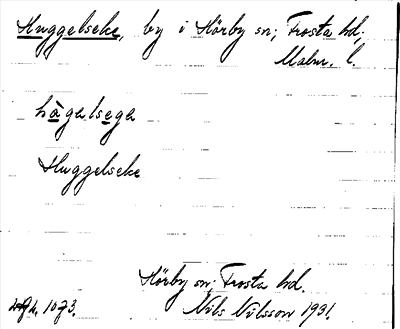 Huggelseke, by i Hörby sn; Frosta hd,
Malm. l.
hàgelsega
Huggelseke
Hörby sn; Frosta hd.
Nils Nilsson 1931.